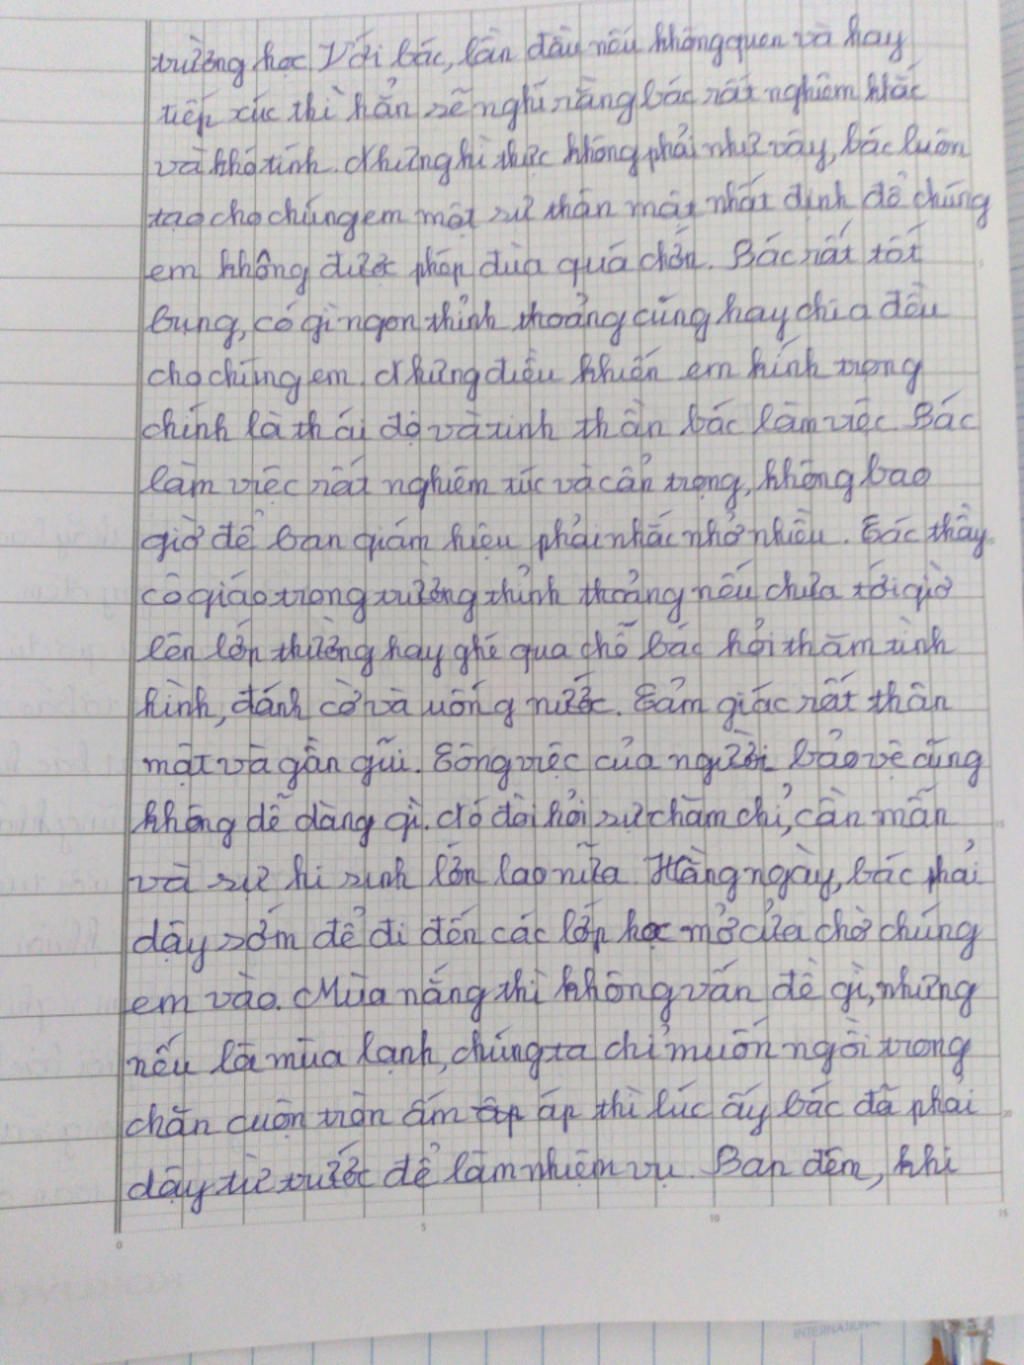 trường học Với bác, lần đầu nếu không quen và hay
tiếp xúc thì hẳn sẽ nghĩ rằng bác rất nghiêm khắc
và khó tính. Nhưng kì thực không phải như vậy, bác luôn
tạo cho chúng em một sự thân mật nhất định để chúng
em không được phép đùa quá chớn. Bác rất tốt
bụng, có gì ngon thỉnh thoảng cũng hay chia đều
cho chúng em. Nhưng điều khiến em kính trọng
chính là thái độ và tinh thần bác làm việc. Bác
làm việc rất nghiêm túc và cẩn trọng, không bao
giờ để ban giám hiệu phải nhắc nhở nhiều. Các thầy
cô giáo trong trường thỉnh thoảng nếu chưa tới giờ
lên lớp thường hay ghé qua chỗ bác hỏi thăm tình
hình, đánh cờ và uống nước. Cảm giác rất thân
mật và gần gũi. Công việc của người bảo vệ cũng
không dễ dàng gì. Nó đòi hỏi sự chăm chỉ, cần mẫn
và sự hi sinh lớn lao nữa. Hằng ngày, bác phải
dậy sớm để đi đến các lớp học mở cửa chờ chúng
em vào. Mùa nắng thì không vấn đề gì, nhưng
nếu là mùa lạnh, chúng ta chỉ muốn ngồi trong
chăn cuộn tròn ấm áp thì lúc ấy bác đã phải
dậy từ trước để làm nhiệm vụ. Ban đêm, khi
0 5 10 15
INTERNATIONAL